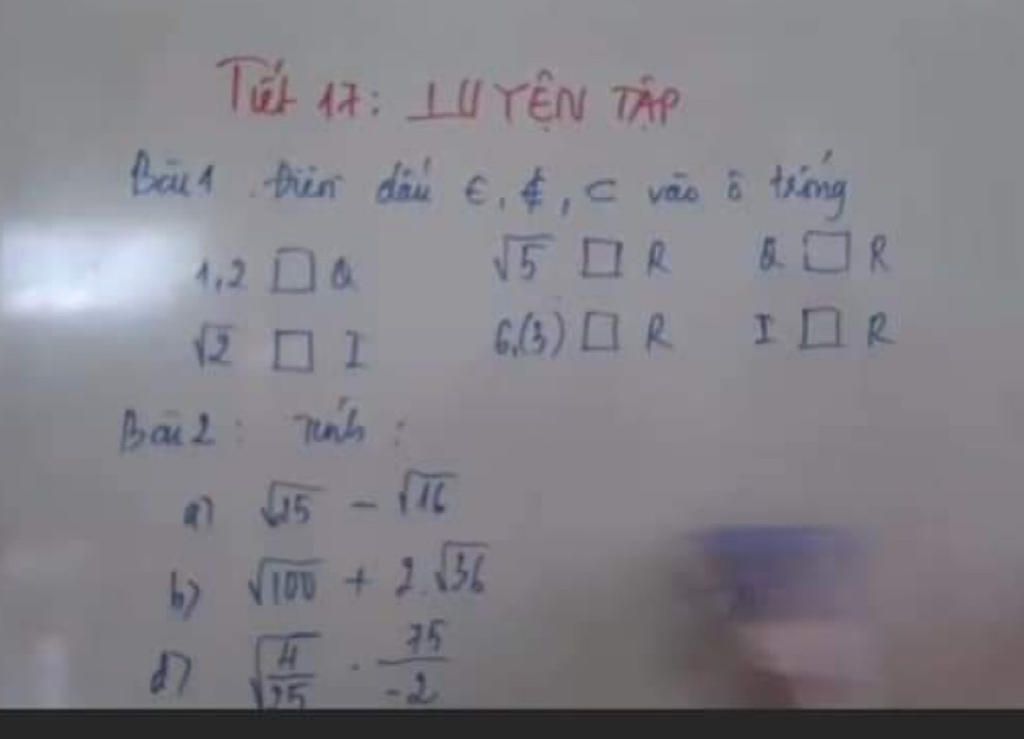 Tiết 17: LUYỆN TẬP
Bài 1. Điền dấu ∈, ∉, ⊂ vào ô trống
1,2 □ Q √5 □ R Q □ R
√2 □ I 6,(3) □ R I □ R
Bài 2: Tính:
a) √25 - √16
b) √100 + 2.√36
d) √(4/25) . 75/-2